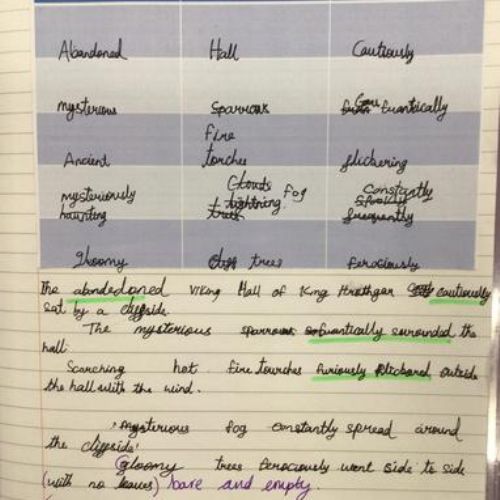 Abandoned Hall Cautiously
mysterious Sparrows frantically
Fire
Ancient torches flickering
Clouds Constantly
mysteriously lightning fog
haunting trees frequently
gloomy trees ferociously
The abandoned Viking Hall of King Hrothgar cautiously
sat by a cliffside.
The mysterious sparrows frantically surrounded the
hall
Scorching hot fire tourches furiously flickered outside
the hall with the wind.
mysterious fog constantly spread around
the cliffside.
Gloomy trees ferociously went side to side
(with no leaves) bare and empty.